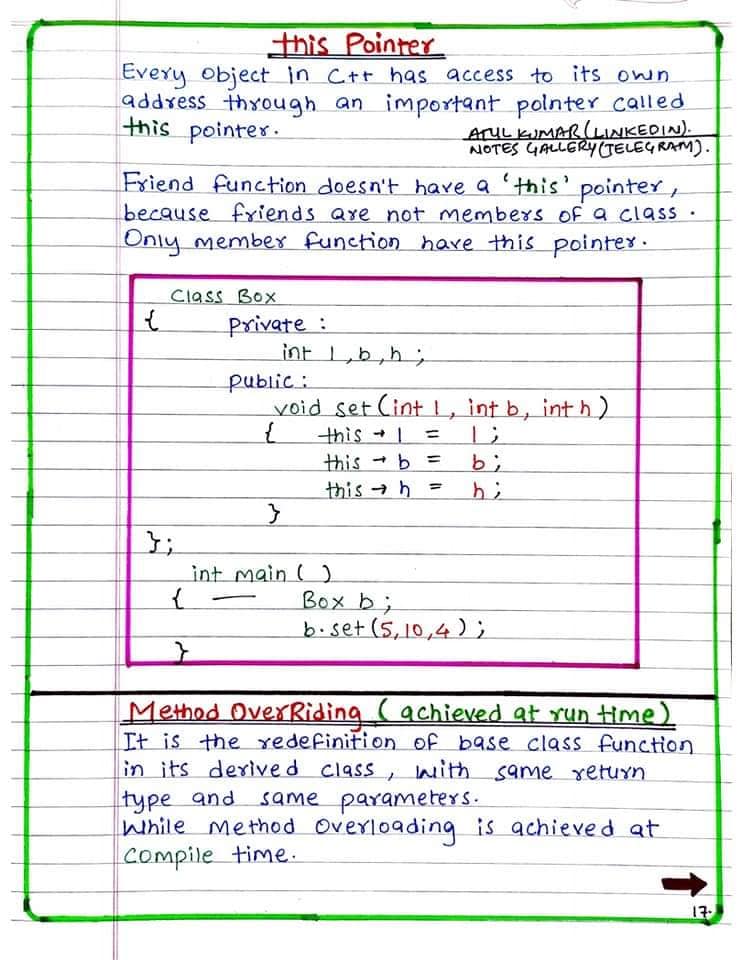 this Pointer
Every object in C++ has access to its own
address through an important pointer called
this pointer.
ATUL KUMAR (LINKEDIN).
NOTES GALLERY (TELEGRAM).
Friend function doesn't have a 'this' pointer,
because friends are not members of a class.
Only member function have this pointer.
Class Box
{ private :
int l, b, h ;
public :
void set (int l, int b, int h)
{ this → l = l ;
this → b = b ;
this → h = h ;
}
};
int main ( )
{ — Box b ;
b.set (5,10,4) ;
}
Method OverRiding (achieved at run time)
It is the redefinition of base class function
in its derived class, with same return
type and same parameters.
While Method Overloading is achieved at
compile time.
17.